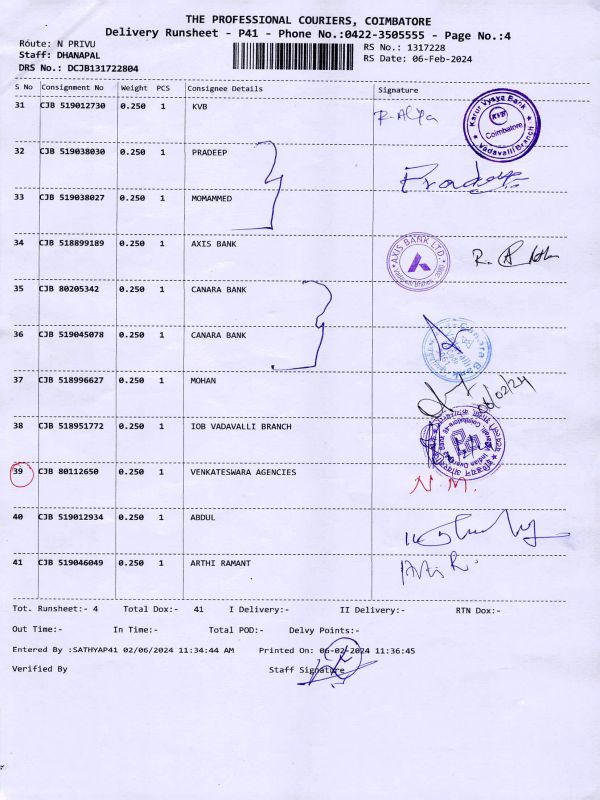 THE PROFESSIONAL COURIERS, COIMBATORE
Delivery Runsheet - P41 - Phone No.:0422-3505555 - Page No.:4
Route: N PRIVU
RS No.: 1317228
Staff: DHANAPAL
RS Date: 06-Feb-2024
DRS No.: DCJB131722804
S No Consignment No Weight PCS Consignee Details Signature
31 CJB 519012730 0.250 1 KVB
Karur Vysya Bank
KVB
Coimbatore
Vadavalli Branch
32 CJB 519038030 0.250 1 PRADEEP
Pradeep
33 CJB 519038027 0.250 1 MOMAMMED
34 CJB 518899189 0.250 1 AXIS BANK
AXIS BANK LTD.
35 CJB 80205342 0.250 1 CANARA BANK
36 CJB 519045078 0.250 1 CANARA BANK
Canara Bank
37 CJB 518996627 0.250 1 MOHAN
38 CJB 518951772 0.250 1 IOB VADAVALLI BRANCH
39 CJB 80112650 0.250 1 VENKATESWARA AGENCIES
N.M.
40 CJB 519012934 0.250 1 ABDUL
41 CJB 519046049 0.250 1 ARTHI RAMANT
Arti R.
Tot. Runsheet:- 4 Total Dox:- 41 I Delivery:- II Delivery:- RTN Dox:-
Out Time:- In Time:- Total POD:- Delvy Points:-
Entered By :SATHYAP41 02/06/2024 11:34:44 AM Printed On: 06-02-2024 11:36:45
Verified By Staff Signature